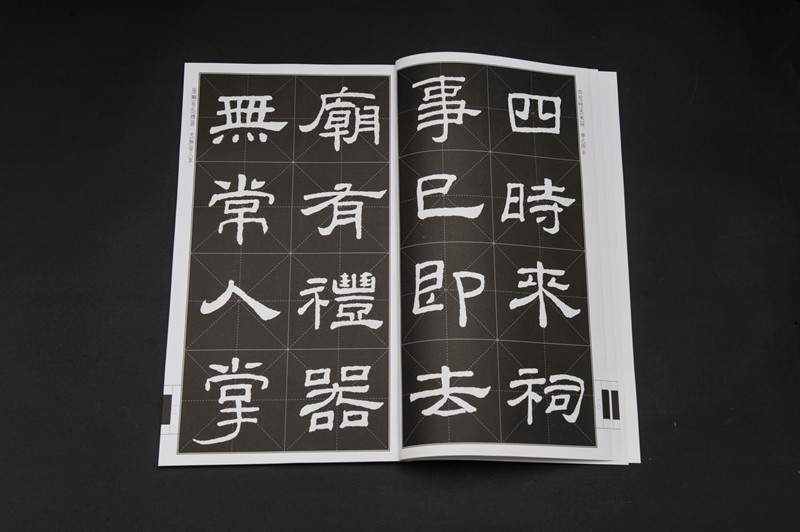 四時來祠
事已即去
廟有禮器
無常人掌